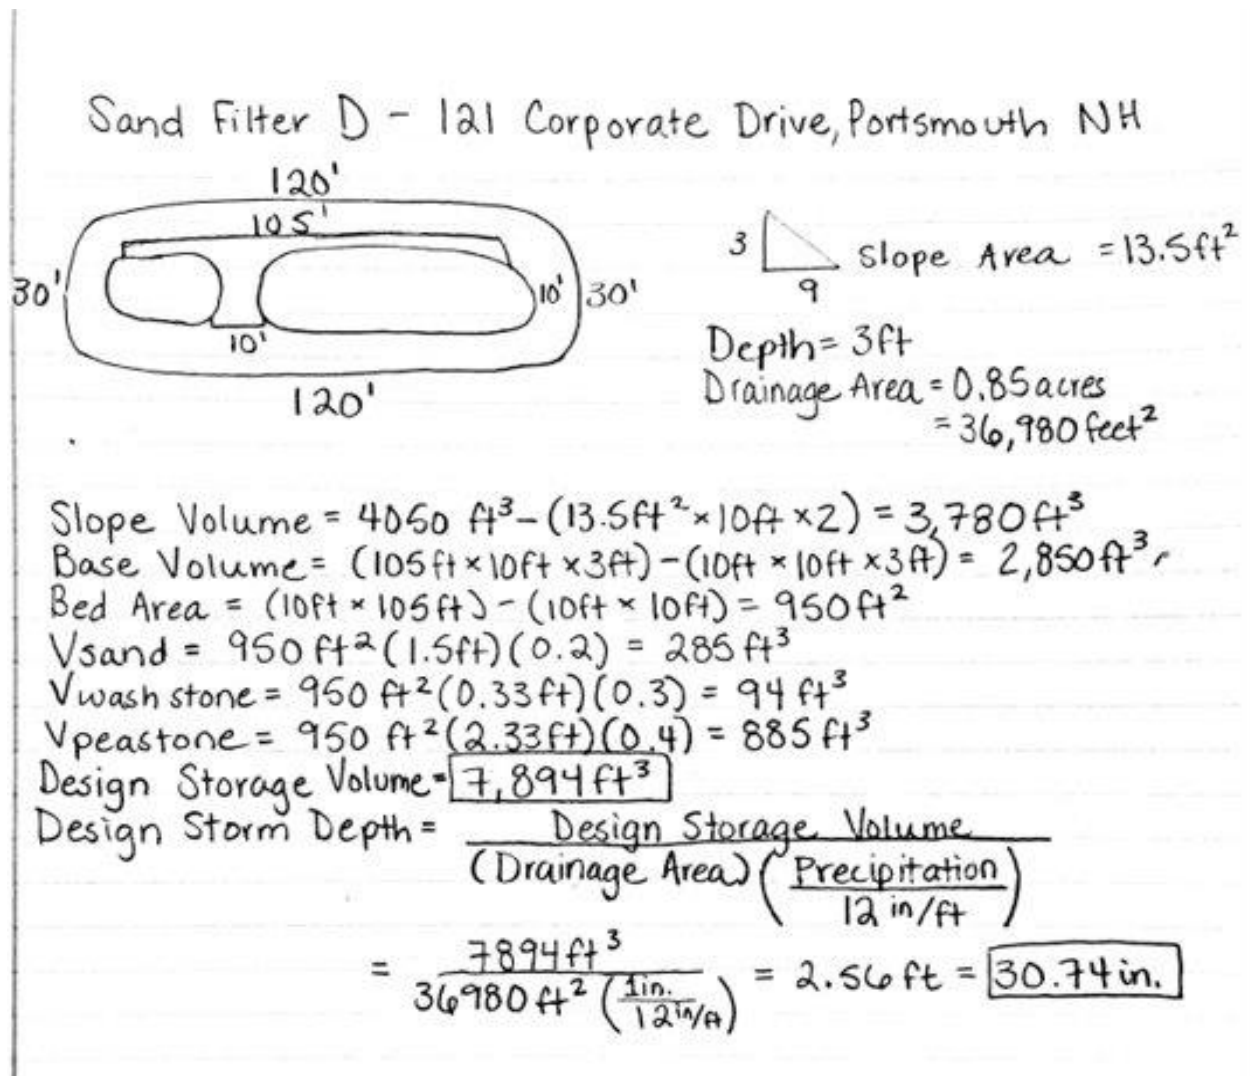 Sand Filter D - 121 Corporate Drive, Portsmouth NH
120'
105'
30'
10'
30'
10'
120'
3
9
Slope Area = 13.5ft²
Depth = 3ft
Drainage Area = 0.85 acres
= 36,980 feet²
Slope Volume = 4050 ft³ - (13.5ft² × 10ft × 2) = 3,780 ft³
Base Volume = (105ft × 10ft × 3ft) - (10ft × 10ft × 3ft) = 2,850 ft³
Bed Area = (10ft × 105ft) - (10ft × 10ft) = 950ft²
Vsand = 950 ft² (1.5ft)(0.2) = 285 ft³
Vwash stone = 950 ft² (0.33ft)(0.3) = 94 ft³
Vpeastone = 950 ft² (2.33ft)(0.4) = 885 ft³
Design Storage Volume = 7,894 ft³
Design Storm Depth = Design Storage Volume
(Drainage Area) (Precipitation
12 in/ft)
= 7894ft³
36980 ft² (1in.
12in/ft) = 2.56 ft = 30.74 in.